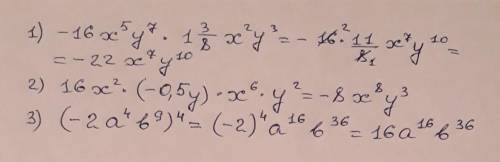 1) -16x⁵y⁷ · 1 3/8 x²y³ = - 16² · 11/8₁ x⁷y¹⁰ =
= -22x⁷y¹⁰
2) 16x² · (-0,5y) · x⁶ · y² = -8x⁸y³
3) (-2a⁴b⁹)⁴ = (-2)⁴a¹⁶b³⁶ = 16a¹⁶b³⁶